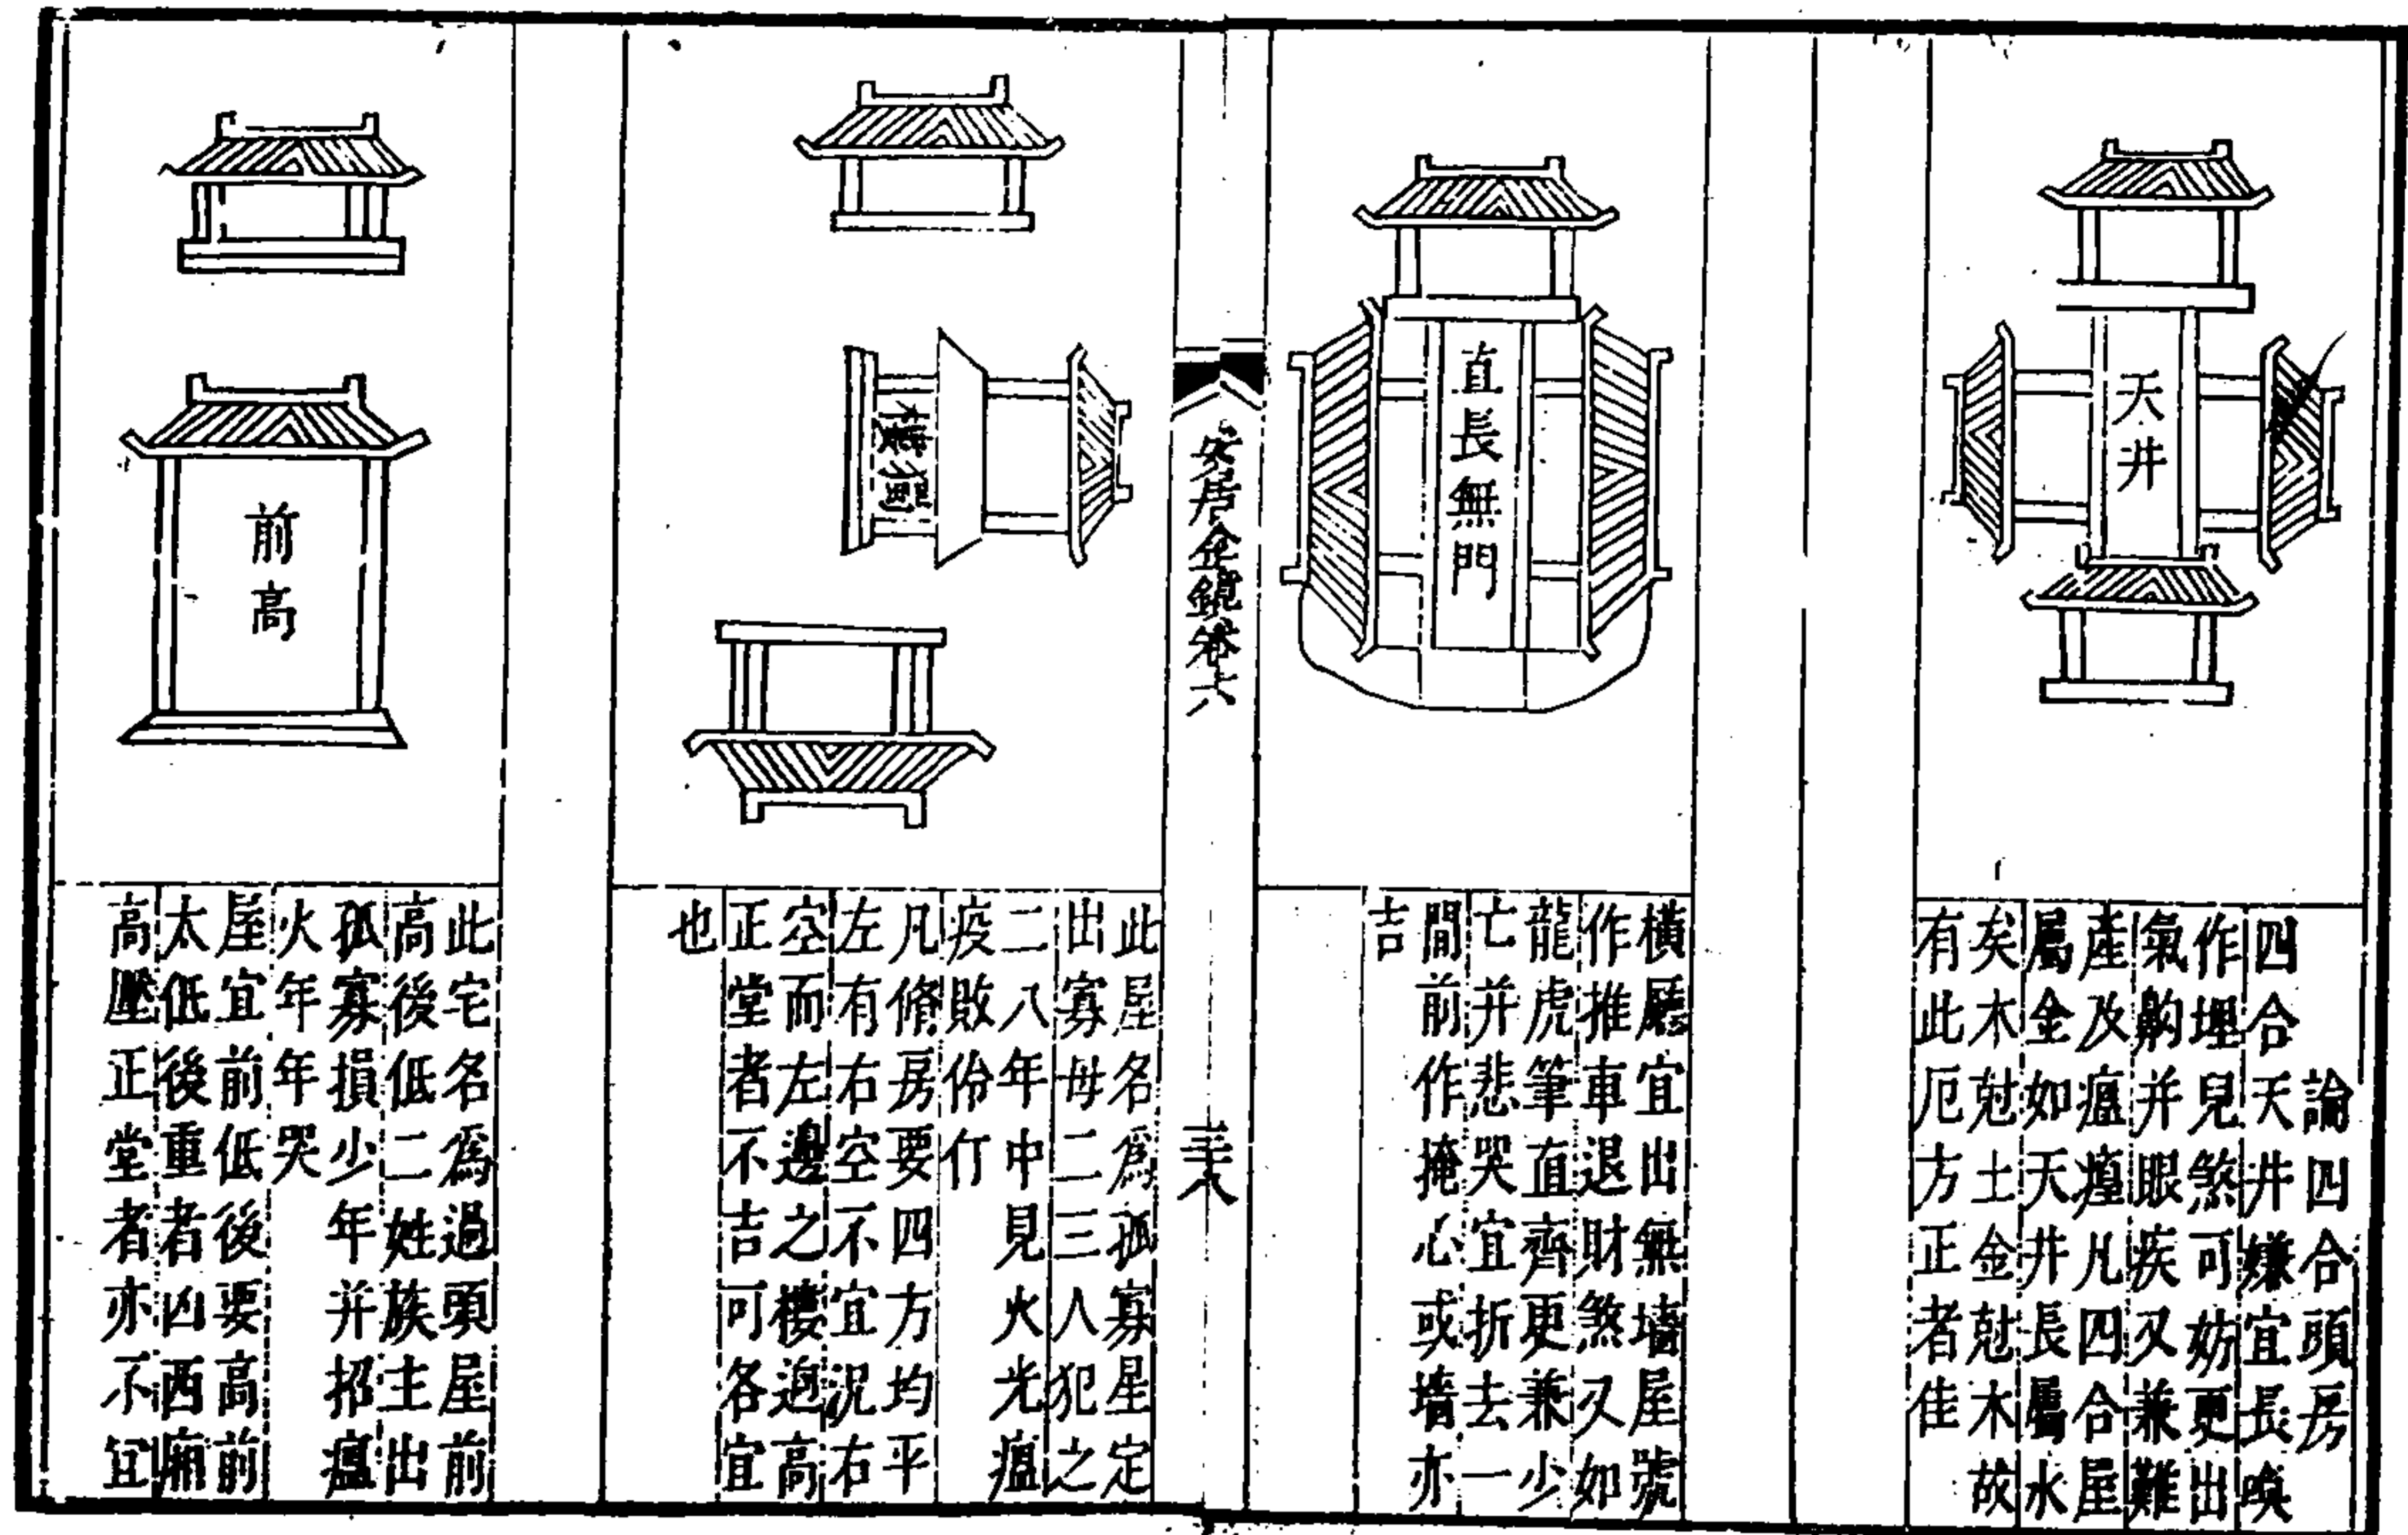 天井
論四合頭房
四合天井嫌宜長喚
作埋兒煞可妨更出
氣齁并眼疾又兼難
產及瘟㾮凡四合屋
屬金如天井長屬水
矣木尅土金尅木故
有此厄方正者佳
直長無門
橫廳宜出無墻屋號
作推車退財煞又如
龍虎筆直齊更兼少
亡并悲哭宜折去一
間前作掩心或墻亦
吉
安居金鏡卷六
三十八
樓獨
此屋名爲孤寡星定
出寡母二三人犯之
二八年中見火光瘟
疫敗伶仃
凡脩房要四方均平
左有右空不宜況右
空而左邊之樓逈高
正堂者不吉可各宜
也
前高
此宅名爲過頭屋前
高後低二姓族主出
孤寡損少年并招瘟
火年年哭
屋宜前低後要高前
太低後重者凶西廂
高壓正堂者亦不宜